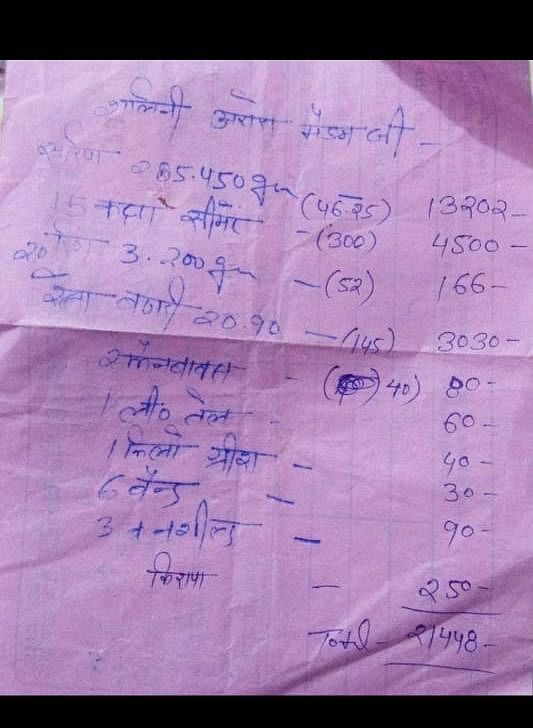 शालिनी अरोरा मैडम जी -
सरिया 285.450 gm (46.25) 13202-
15 कट्टा सीमेंट -(300) 4500-
20 3.200 gm -(52) 166-
रेता बजरी 20.90 -(145) 3030-
- ( 40) 80-
1 ली० तेल - 60-
1 किलो ग्रीश - 40-
6 बैन्ड - 30-
3 - 90-
किराया - 250-
Total - 21448-